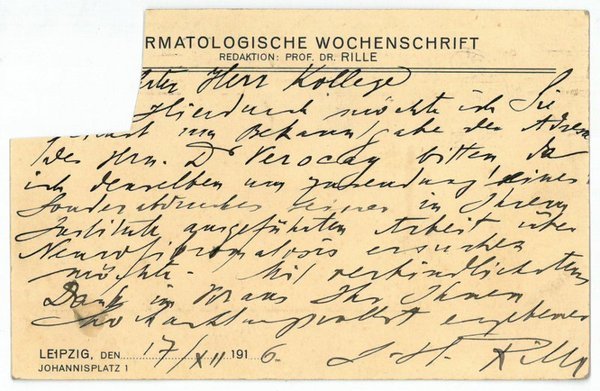 RMATOLOGISCHE WOCHENSCHRIFT
REDAKTION: PROF. DR. RILLE
rter Herr Kollege
Hierdurch möchte ich Sie
um Bekanntgabe der Adresse
des Hrn. Dr Verocay bitten, da
ich denselben um Zusendung eines
Sonderabdruckes seiner in Ihrem
Institute ausgeführten Arbeit über
Neurofibromatosis ersuchen
möchte. Mit verbindlichstem
Dank im Voraus Ihr Ihnen
hochachtungsvollst ergebener
LEIPZIG, DEN 17/XII 1916.
J. H. Rille
JOHANNISPLATZ 1